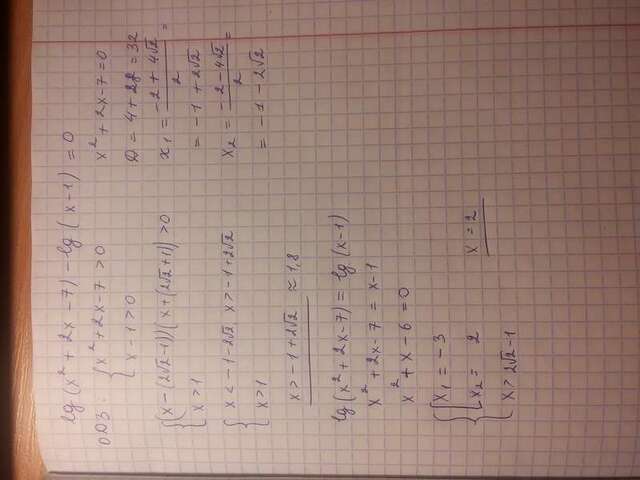 lg(x² + 2x - 7) - lg(x - 1) = 0
ОДЗ: { x² + 2x - 7 > 0
x - 1 > 0
x² + 2x - 7 = 0
D = 4 + 28 = 32
x₁ = (-2 + 4√2)/2 =
= -1 + 2√2
x₂ = (-2 - 4√2)/2 =
= -1 - 2√2
{ (x - (2√2 - 1))(x + (2√2 + 1)) > 0
x > 1
{ x < -1 - 2√2, x > -1 + 2√2
x > 1
x > -1 + 2√2 ≈ 1,8
lg(x² + 2x - 7) = lg(x - 1)
x² + 2x - 7 = x - 1
x² + x - 6 = 0
{ [ x₁ = -3
x₂ = 2
x > 2√2 - 1
x = 2